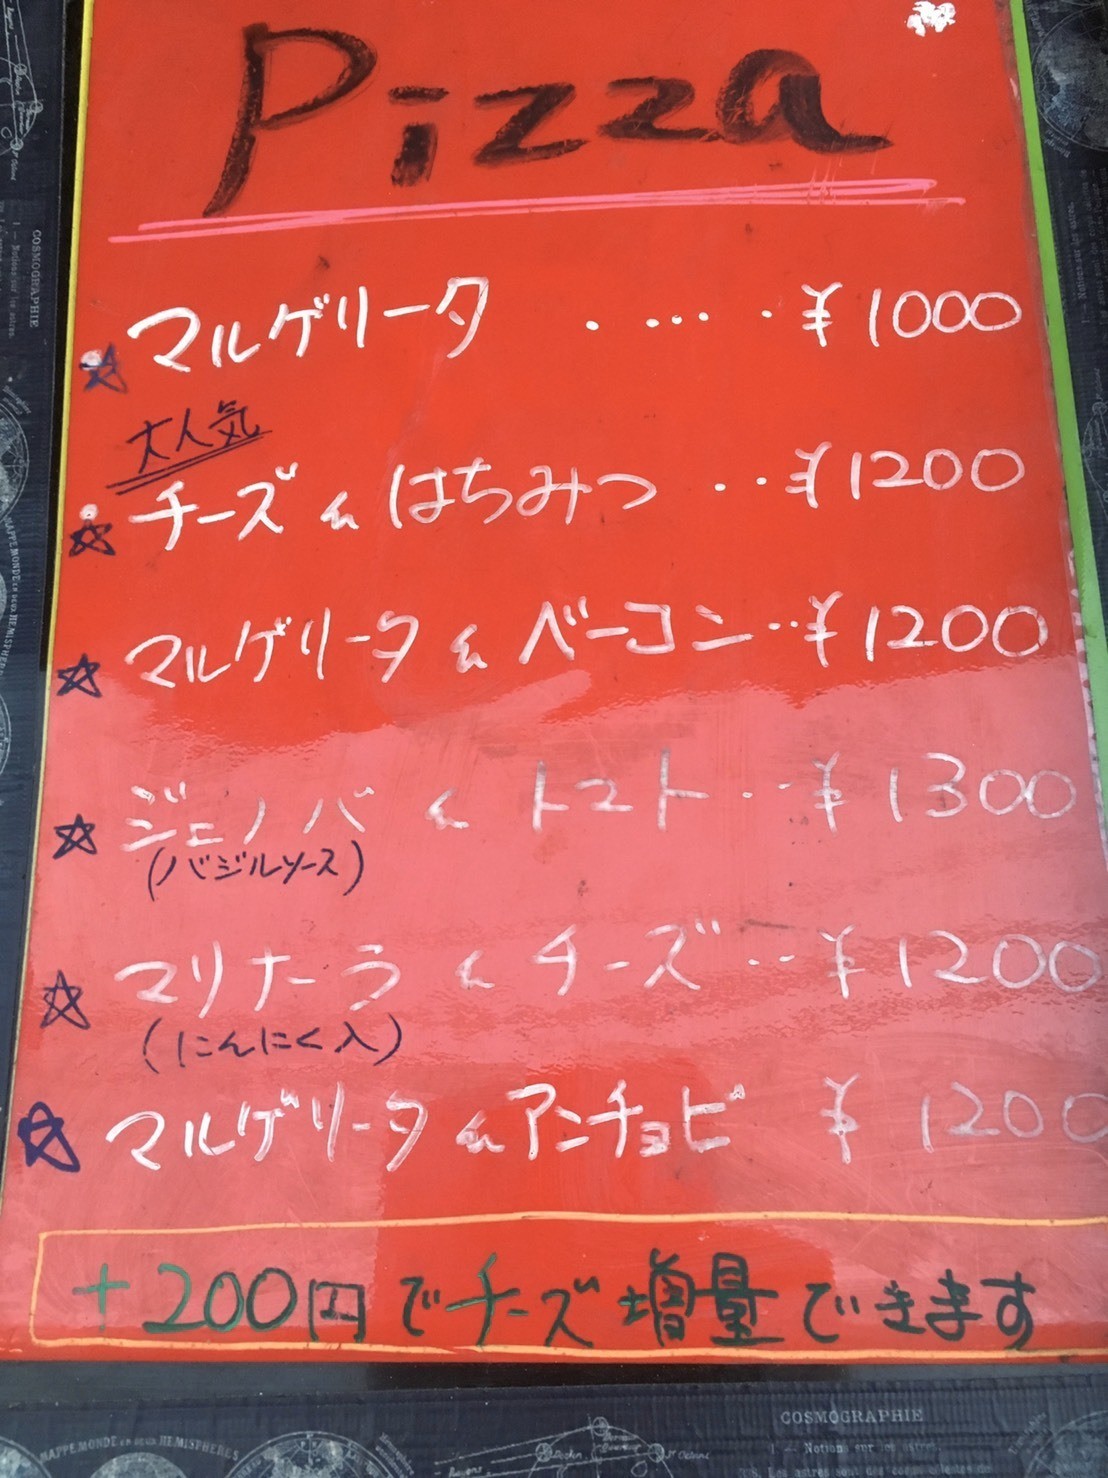 Pizza
マルゲリータ ・・・・・ ¥1000
大人気
チーズ & はちみつ ・・・ ¥1200
マルゲリータ & ベーコン ・・ ¥1200
ジェノバ & トマト ・・ ¥1300
(バジルソース)
マリナーラ & チーズ ・・ ¥1200
(にんにく入)
マルゲリータ & アンチョビ ¥1200
+200円でチーズ増量できます
COSMOGRAPHIE
MAPPEMONDE EN DEUX HEMISPHERES
COSMOGRAPHIE
1 — Notions sur les astres